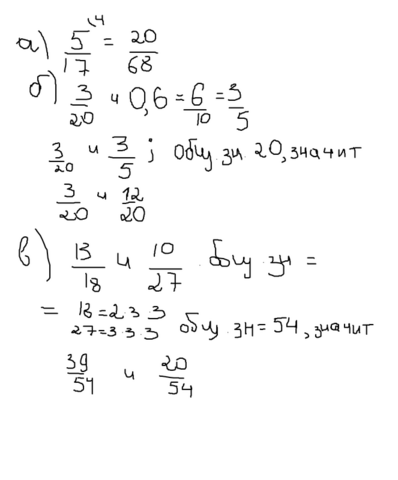 а) 5/17 \4 = 20/68
б) 3/20 и 0,6 = 6/10 = 3/5
3/20 и 3/5 ; общ. зн. 20, значит
3/20 и 12/20
в) 13/18 и 10/27 . общ зн =
= 18=2.3.3
27=3.3.3 общ. зн = 54, значит
39/54 и 20/54